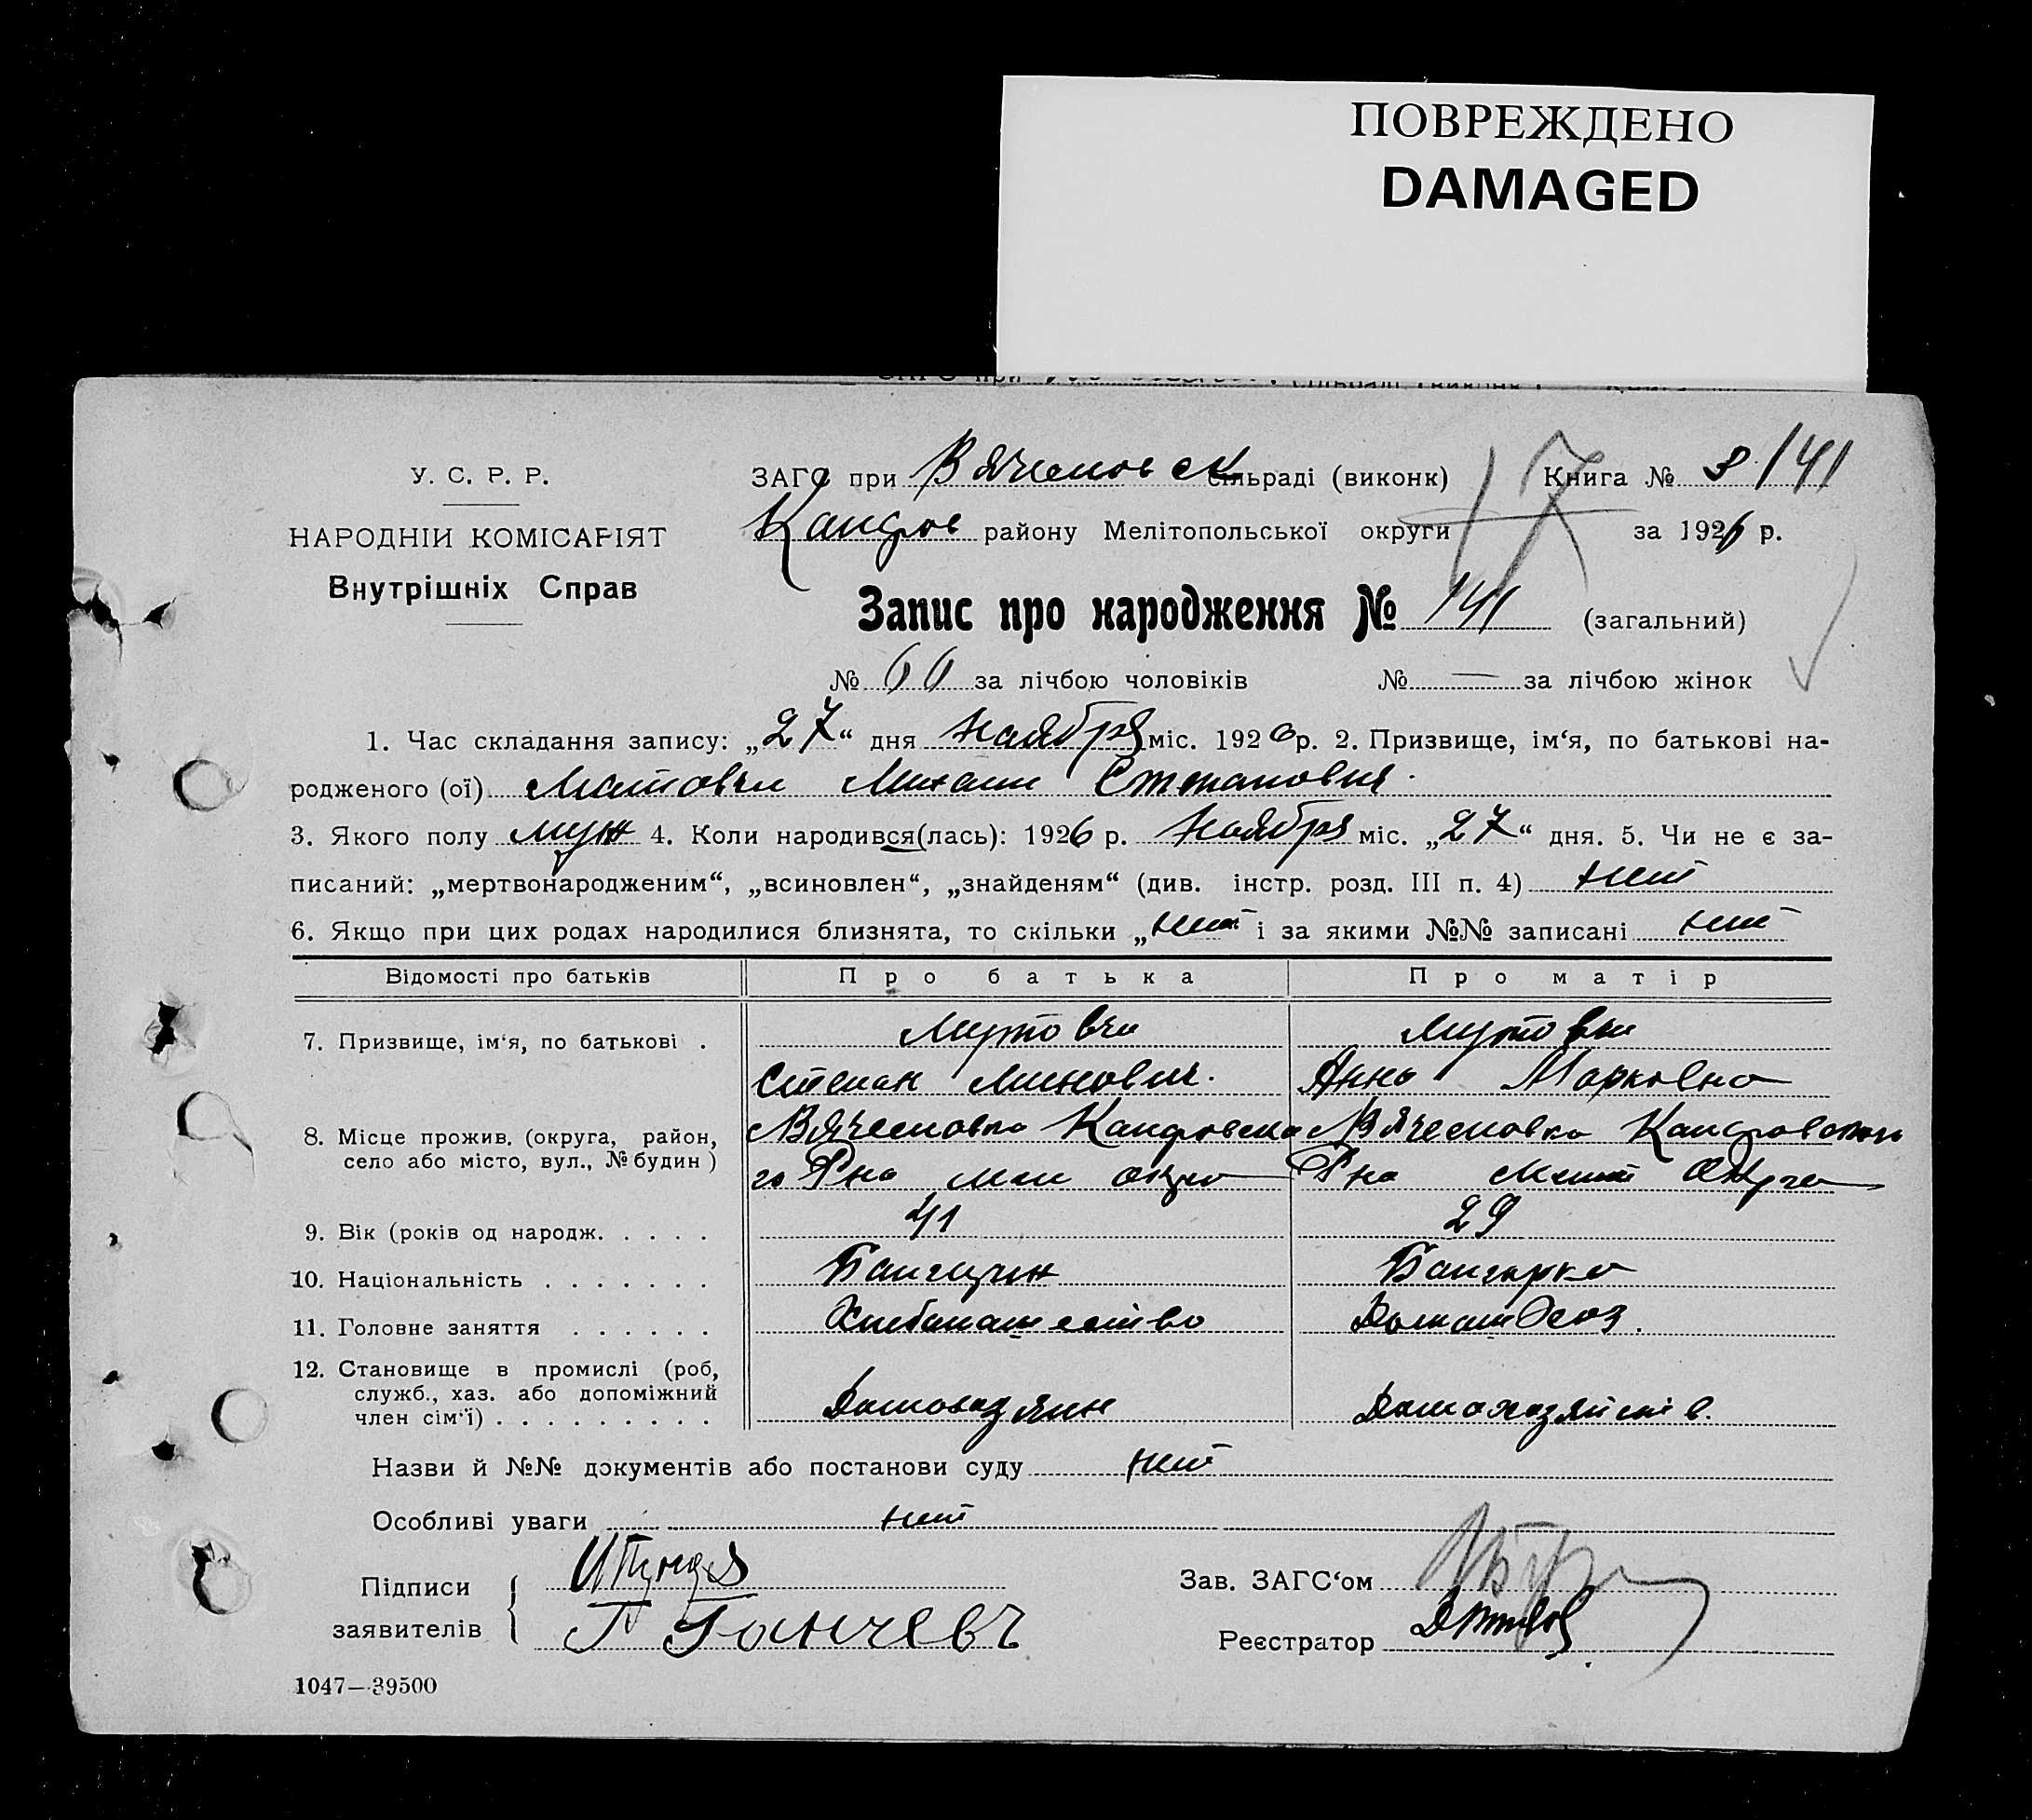 ПОВРЕЖДЕНО
DAMAGED
У. С. Р. Р.
НАРОДНІЙ КОМІСАРІЯТ
Внутрішніх Справ
ЗАГС при Вячеслов ск сільраді (виконк) Книга № 3/141
района Мелітопольської округи за 1926 р.
17
Запис про народження № 141 (загальний)
№ 60 за лічбою чоловіків № — за лічбою жінок
1. Час складання запису: „27“ дня Ноября міс. 1926 р. 2. Призвище, ім‘я, по батькові на-
родженого (ої) Михаил Степанович.
3. Якого полу муж 4. Коли народився(лась): 1926 р. Ноября міс. „27“ дня. 5. Чи не є за-
писаний: „мертвонародженим“, „всиновлен“, „знайденям“ (див. інстр. розд. III п. 4) нет
6. Якщо при цих родах народилися близнята, то скільки „нет і за якими №№ записані нет
Відомості про батьків Про батька Про матір
7. Призвище, ім‘я, по батькові .
Степан Анна Марковна
8. Місце прожив. (округа, район,
село або місто, вул., № будин)
9. Вік (років од народж. . . . . 41 29
10. Національність . . . . . . . Болгарин Болгарка
11. Головне заняття . . . . . . Хлебопашество Домаш Хоз.
12. Становище в промислі (роб,
служб., хаз. або допоміжний
член сім‘ї) . . . . . . . . . Домохозяин Домохозяйств.
Назви й №№ документів або постанови суду нет
Особливі уваги нет
Підписи
заявителів Г Ганчевъ
Зав. ЗАГС‘ом
Реєстратор
1047—39500